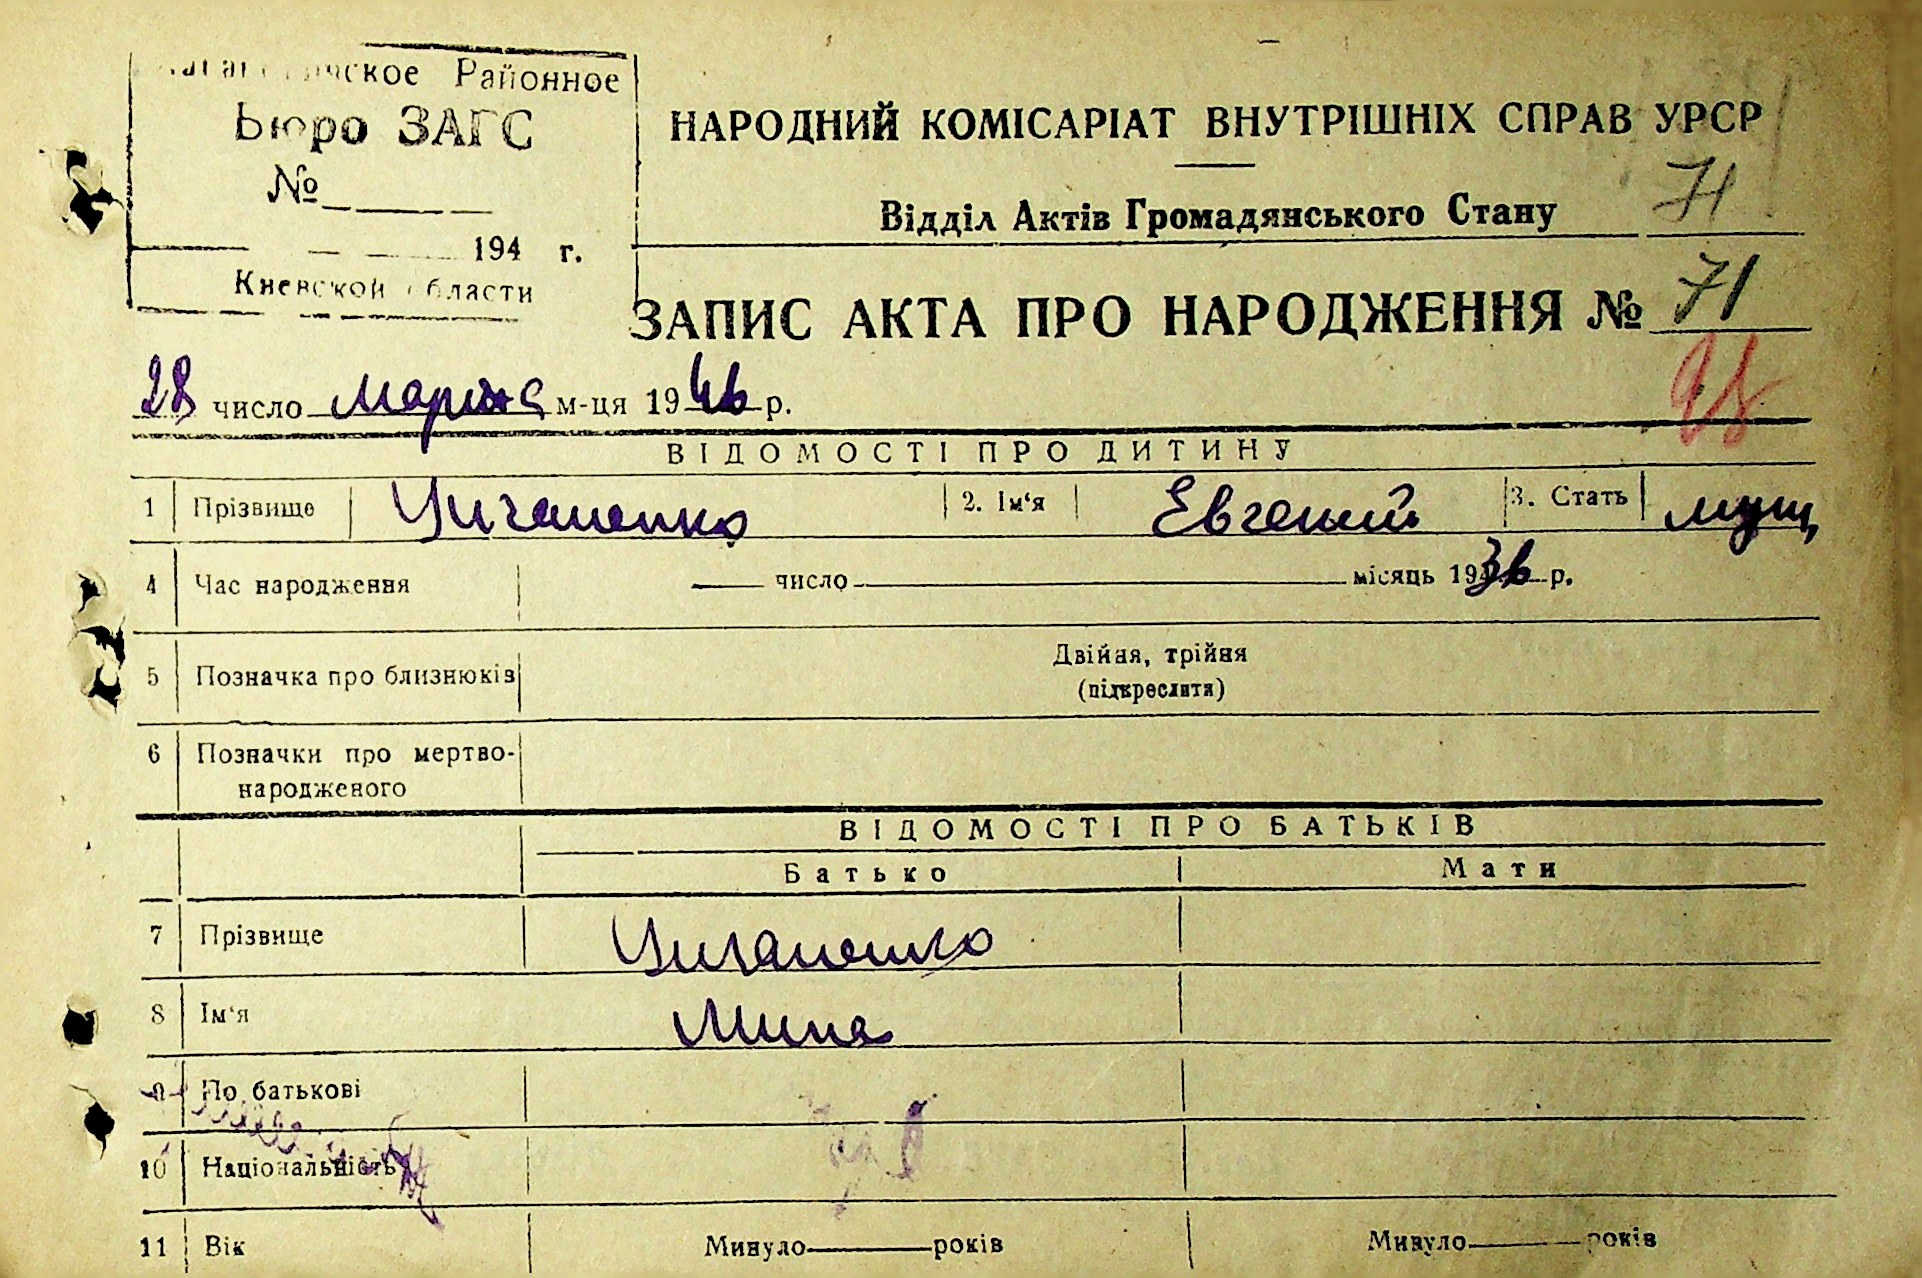 Районное
Бюро ЗАГС
№
194 г.
Киевской области
НАРОДНИЙ КОМІСАРІАТ ВНУТРІШНІХ СПРАВ УРСР
Відділ Актів Громадянського Стану 71
ЗАПИС АКТА ПРО НАРОДЖЕННЯ № 71
28 число марта м-ця 1946 р.
ВІДОМОСТІ ПРО ДИТИНУ
1 Прізвище Цигапенко 2. Ім'я Евгений 3. Стать мущ
4 Час народження число місяць 1936 р.
5 Позначка про близнюків Двійня, трійня
(підкреслити)
6 Позначки про мертво-
народженого
ВІДОМОСТІ ПРО БАТЬКІВ
Батько Мати
7 Прізвище
8 Ім'я Мина
9 По батькові
10 Національність
11 Вік Минуло років Минуло років